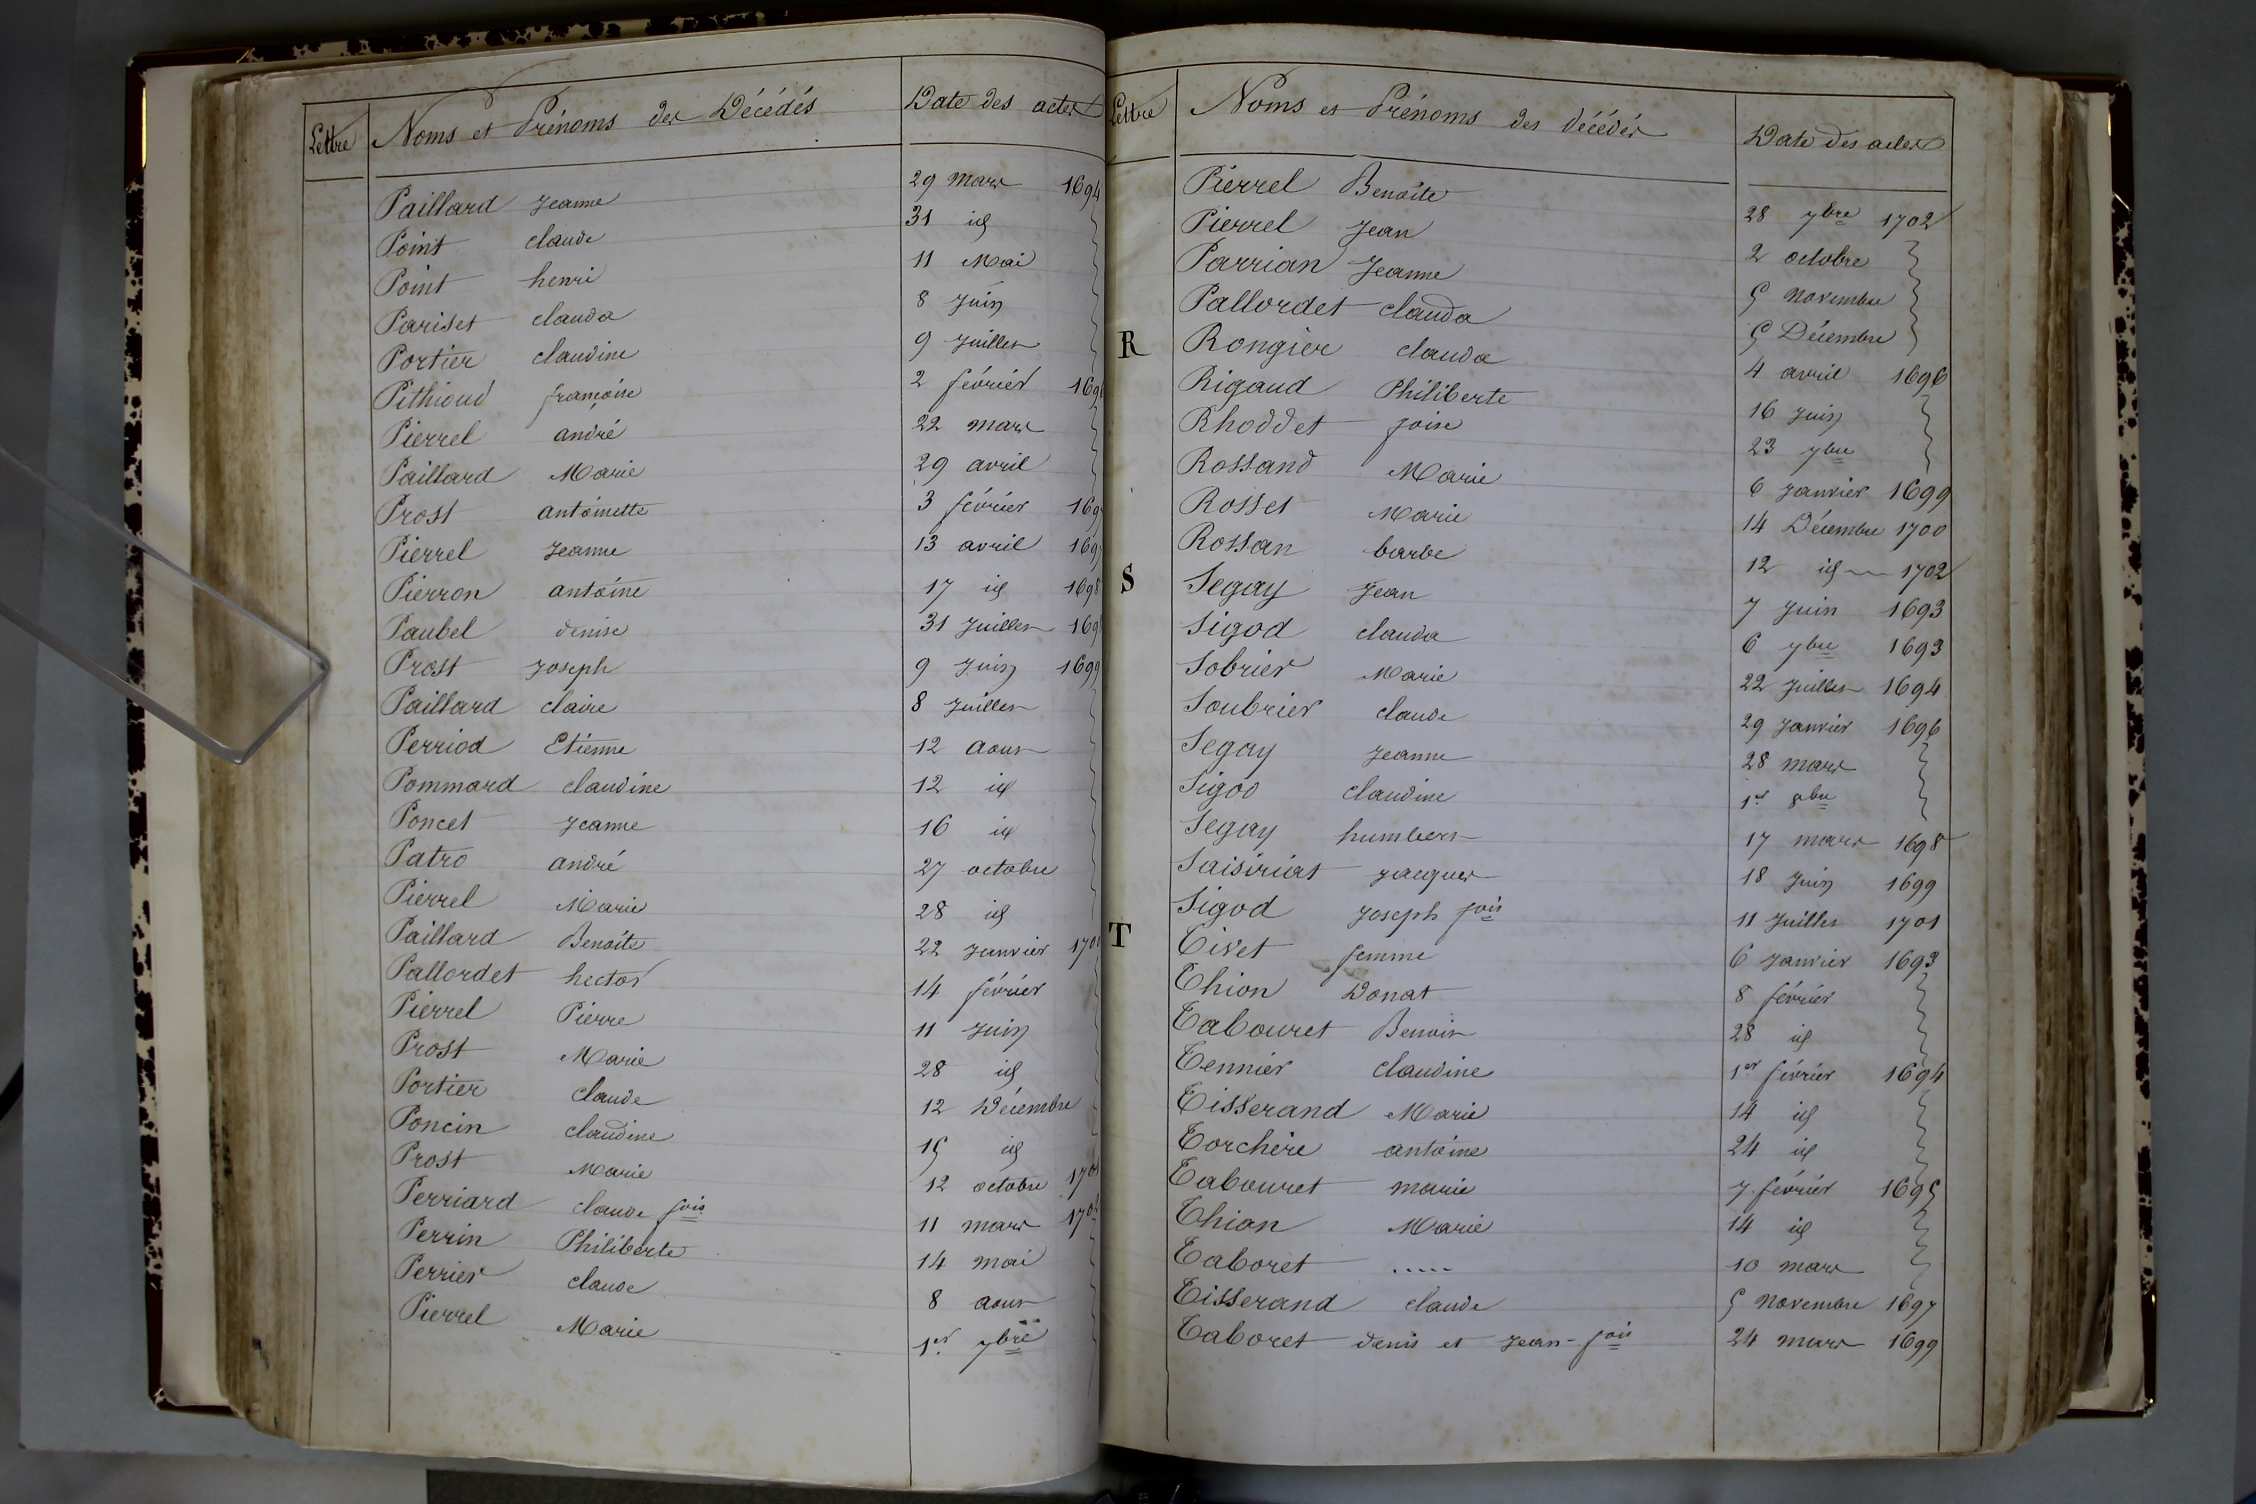 Lettre Noms et Prénoms des Décédés Date des actes
Paillard Jeanne 29 mars 1694
Point claude 31 id
Point henri 11 Mai
Pariset clauda 8 Juin
Portier claudine 9 Juillet
Pithioud françoise 2 février
Pierrel andré 22 mars
Paillard Marie 29 avril
Prost antoinette 3 février
Pierrel Jeanne 13 avril
Pierron antoine 17 id 1698
Paubel denise 31 Juillet
Prost Joseph 9 Juin 1699
Paillard claire 8 Juillet
Perriod Etienne 12 aout
Pommard claudine 12 id
Poncet Jeanne 16 id
Patro andré 27 octobre
Pierrel Marie 28 id
Paillard Benoite 22 Janvier
Pallordet hector 14 février
Pierrel Pierre 11 Juin
Prost Marie 28 id
Portier claude 12 Décembre
Poncin claudine 15 id
Prost Marie 12 octobre
Perriard claude fois 11 mars
Perrin Philiberte 14 mai
Perrier claude 8 aout
Pierrel Marie 1er 7bre
Lettre Noms et Prénoms des décédés Date des actes
Pierrel Benoite 28 7bre 1702
Pierrel Jean 2 octobre
Parrian Jeanne 5 Novembre
Pallordet clauda 5 Décembre
R Rongier clauda 4 avril 1696
Rigaud Philiberte 16 Juin
Rhoddet foise 23 7bre
Rossand Marie 6 Janvier 1699
Rosset Marie 14 Décembre 1700
Rossan barbe 12 id 1702
S Segay Jean 7 Juin 1693
Sigod clauda 6 7bre 1693
Sobrier Marie 22 Juillet 1694
Soubrier claude 29 Janvier 1696
Segay Jeanne 28 mars
Sigod claudine 1er 8bre
Segay humbert 17 mars 1698
Saisiriat Jacques 18 Juin 1699
Sigod Joseph fois 11 Juillet 1701
T Tivet femme 6 Janvier 1693
Thion Donat 8 février
Tabouret Benoit 28 id
Tennier claudine 1er février 1694
Tisserand Marie 14 id
Torchère antoine 24 id
Tabouret marie 7 février 1695
Thion Marie 14 id
Taboret ..... 10 mars
Tisserand claude 5 Novembre 1697
Taboret denis et Jean-fois 24 mars 1699